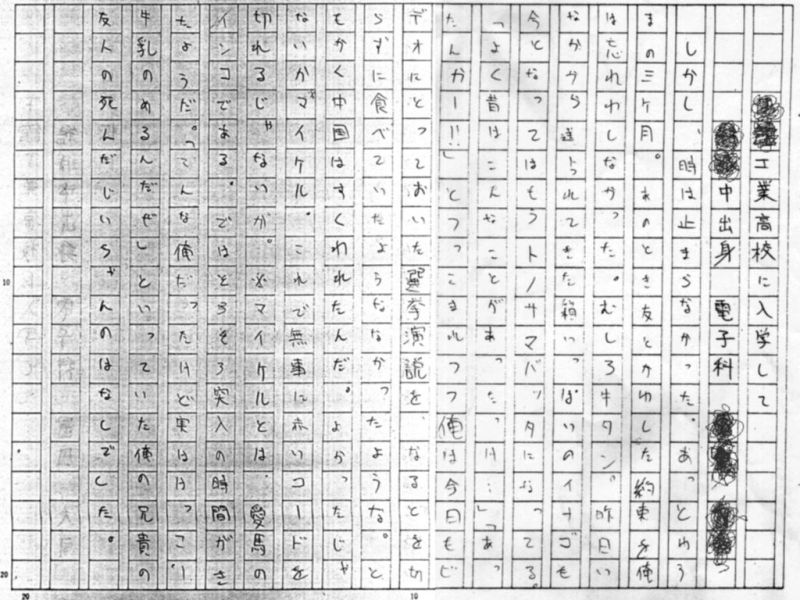 工業高校に入学して
中出身　電子科
しかし、時は止まらなかった。あっとゆう
まの三ケ月。あのとき友とかわした約束を俺
は忘れわしなかった。むしろ牛タン。昨日い
なかから送られてきた箱いっぱいのイナゴも
今となってはもうトノサマバッタになってる。
「よく昔はこんなことがあったっけ…」「あっ
たんかー!!」とつっこまれつつ俺は今日もビ
デオにとっておいた選挙演説を、なるとを切
らずに食べていたようななかったような。と
もかく中国はすくわれたんだ。よかったじゃ
ないかマイケル。これで無事に赤いコードを
切れるじゃないか。※マイケルとは、愛馬の
インコである。ではそろそろ突入の時間がき
たようだ。「こんな俺だったけど実はけっこー
牛乳のめるんだぜ」といっていた俺の兄貴の
友人の死んだじいちゃんのはなしでした。
10
20
20
10